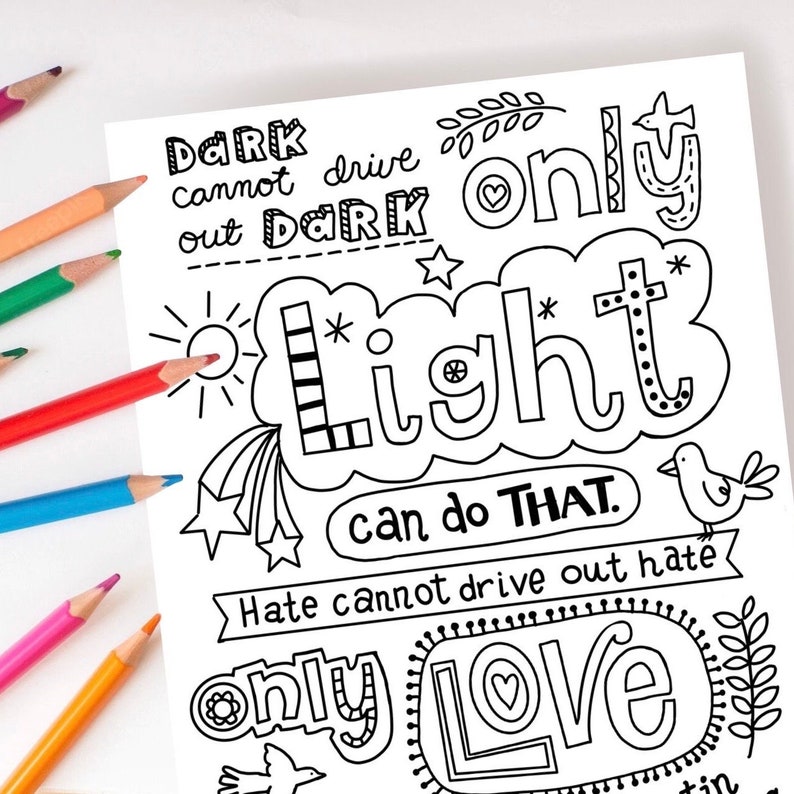 DaRK
cannot drive
out DaRK
only
Light
can do THAT.
Hate cannot drive out hate
only
LOVe